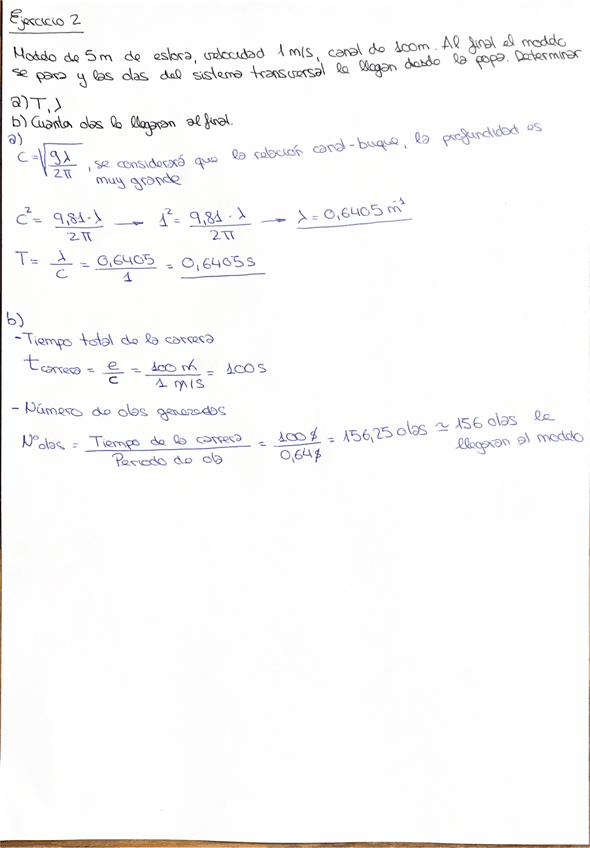 Ejercicio 2
Modelo de 5m de eslora, velocidad 1 m/s, canal de 100m. Al final el modelo
se para y las olas del sistema transversal le llegan desde la popa. Determinar
a) T, λ
b) Cuantas olas le llegaran al final.
a)
C = √(gλ / 2π), se considerará que la relación canal-buque, la profundidad es
muy grande
C² = 9,81·λ / 2π → 1² = 9,81·λ / 2π → λ = 0,6405 m⁻¹
T = λ / C = 0,6405 / 1 = 0,6405 s
b)
- Tiempo total de la carrera
t carrera = e / c = 100 m / 1 m/s = 100 s
- Número de olas generadas
Nº olas = Tiempo de la carrera / Periodo de ola = 100 s / 0,64 s = 156,25 olas ≃ 156 olas le
llegaran al modelo